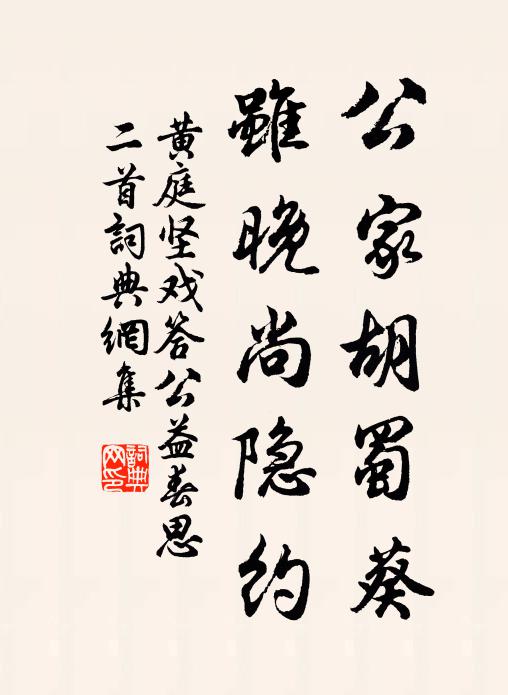 公家胡蜀葵
雖晚尚隐約
黄庭坚戏答公益春思
二首詞典網集
詞典
网印